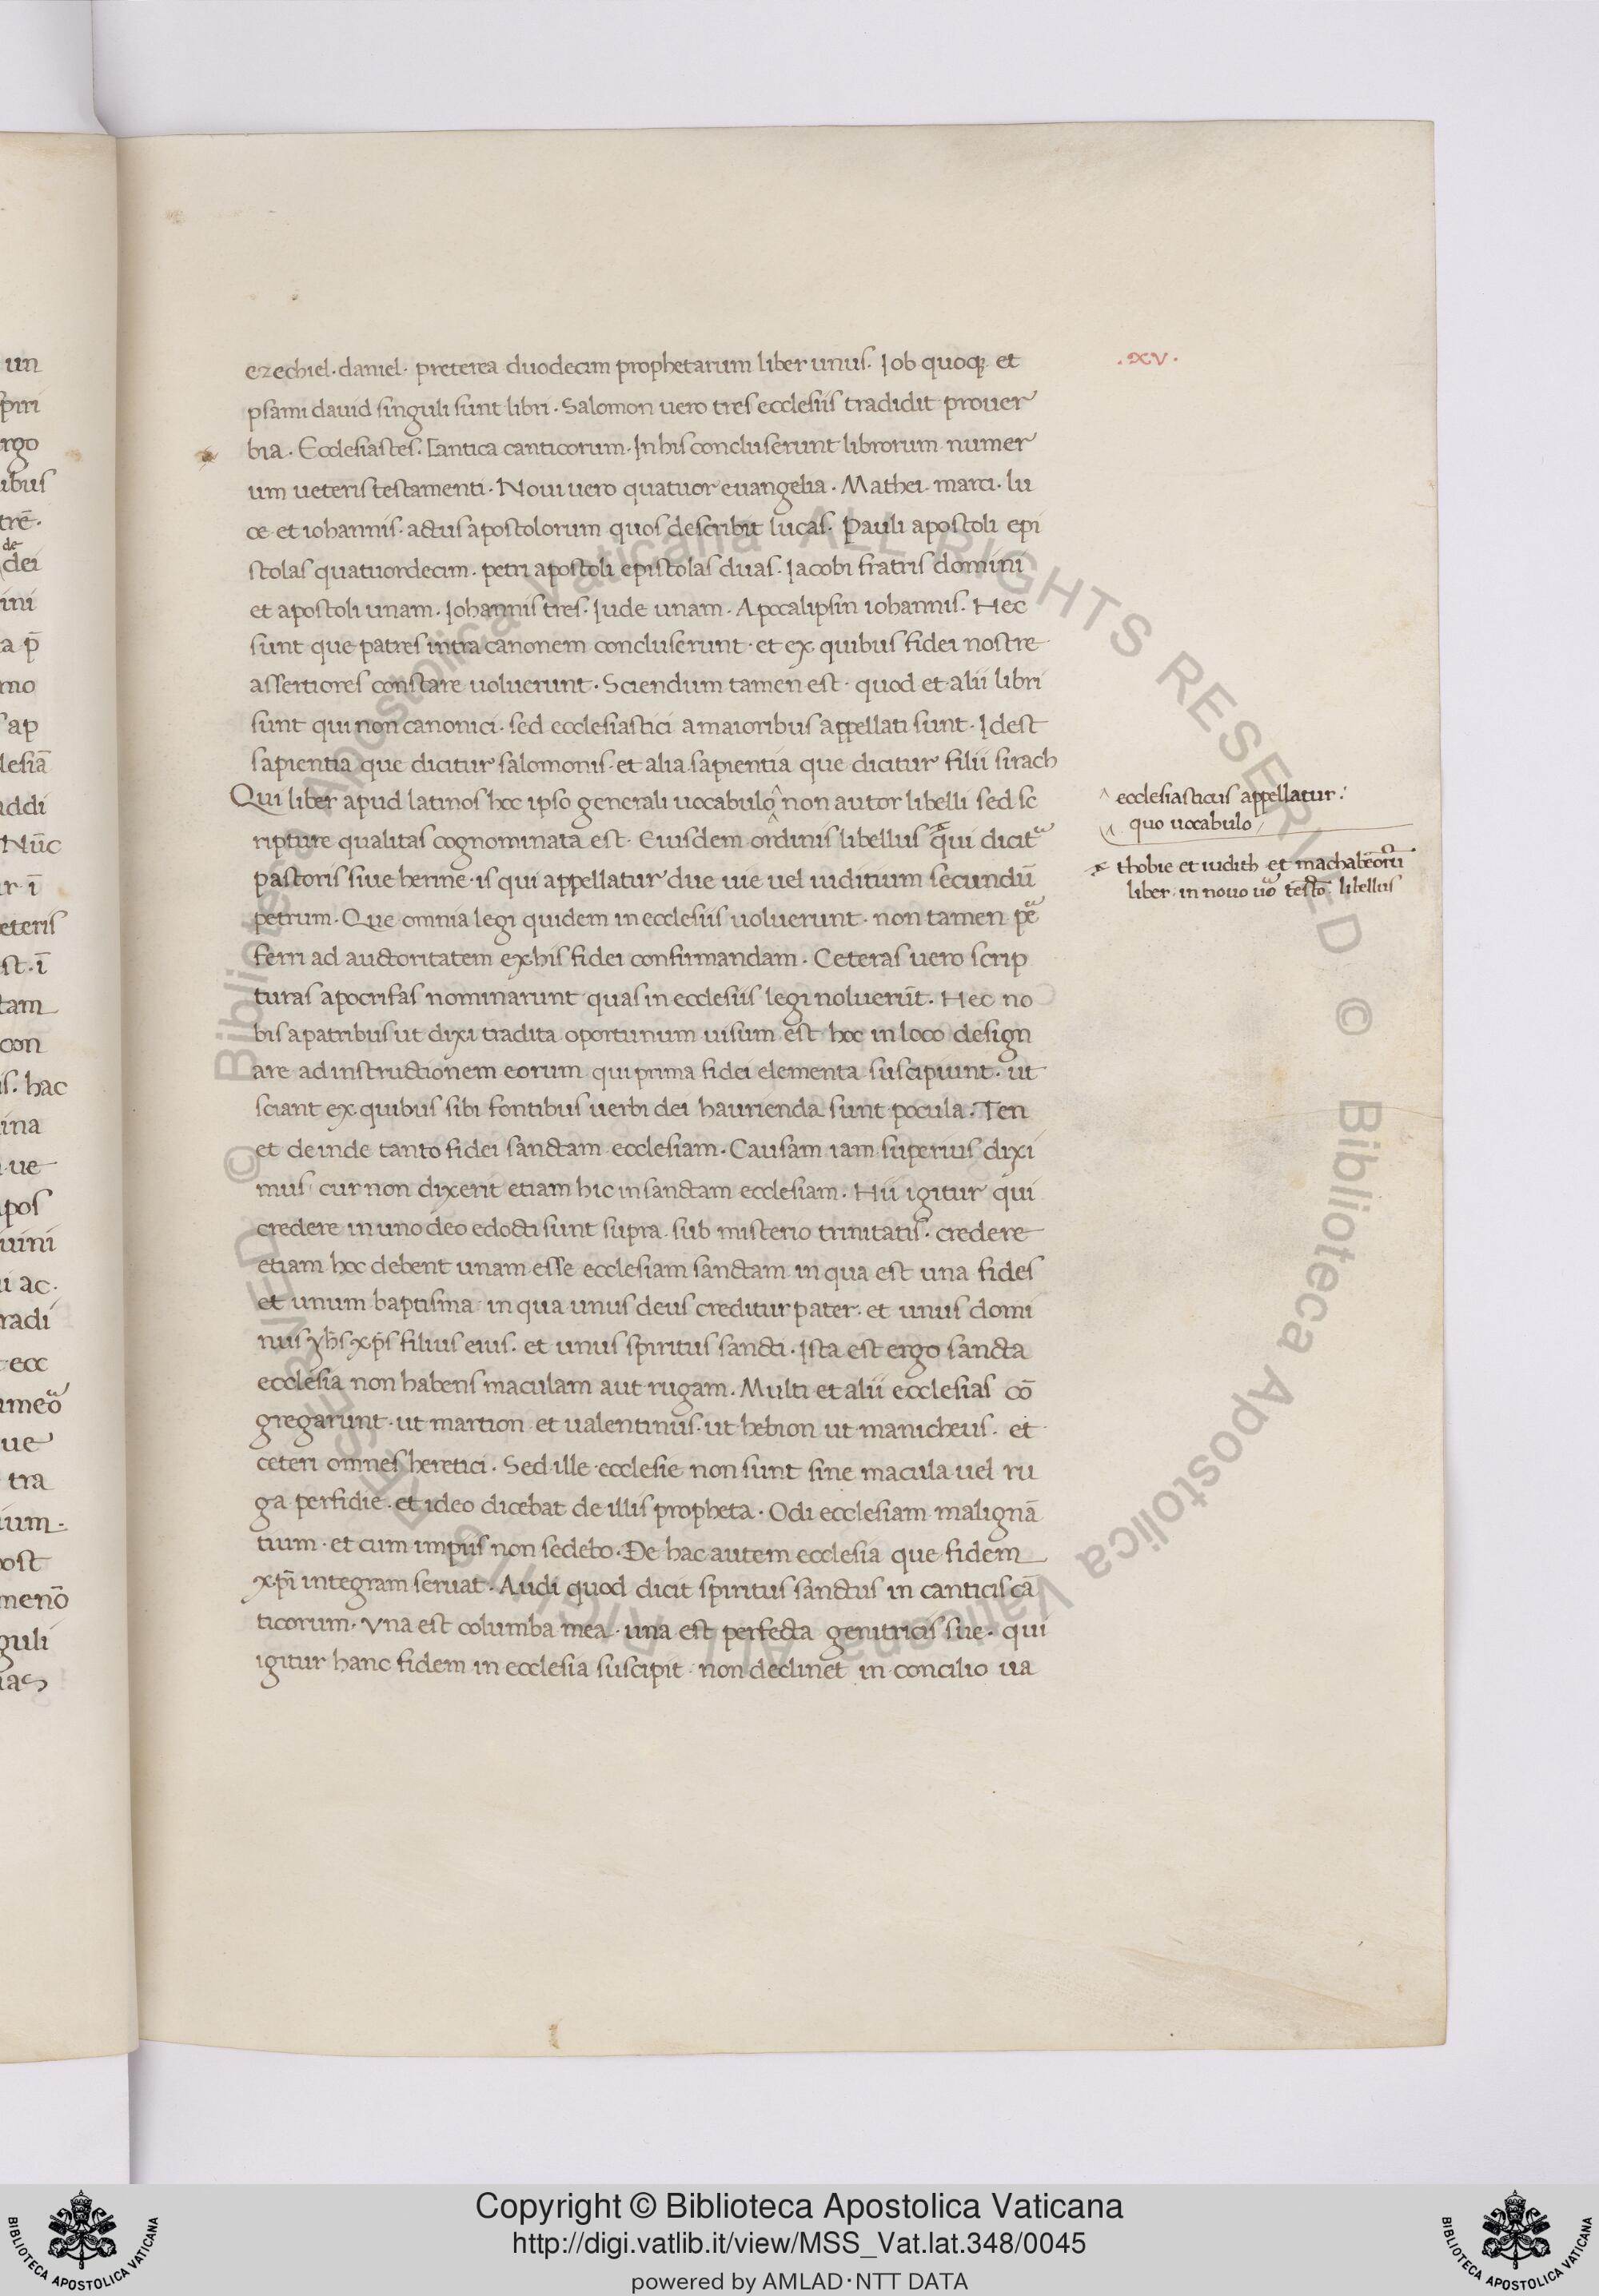 ezechiel. daniel. preterea duodecim prophetarum liber unus. Iob quoq; et
psami dauid singuli sunt libri. Salomon uero tres ecclesiis tradidit prouer
bia. Ecclesiastes. Cantica canticorum. In his concluserunt librorum numer
um ueteris testamenti. Noui uero quatuor euangelia. Mathei. marci. lu
ce et iohannis. actus apostolorum quos describit lucas. Pauli apostoli epi
stolas quatuordecim. petri apostoli epistolas duas. Iacobi fratris domini
et apostoli unam. Iohannis tres. Iude unam. Apocalipsin iohannis. Hec
sunt que patres intra canonem concluserunt. et ex quibus fidei nostre
assertiores constare uoluerunt. Sciendum tamen est. quod et alii libri
sunt qui non canonici. sed ecclesiastici a maioribus appellati sunt. Idest
sapientia que dicitur salomonis. et alia sapientia que dicitur filii sirach
Qui liber apud latinos hoc ipso generali uocabulo non autor libelli sed sc
ripture qualitas cognominata est. Eiusdem ordinis libellus qui dicit
pastoris siue herme. is qui appellatur due uie uel iuditium secundū
petrum. Que omnia legi quidem in ecclesiis uoluerunt. non tamen p
ferri ad auctoritatem ex his fidei confirmandam. Ceteras uero scrip
turas apocrifas nominarunt quas in ecclesiis legi noluerūt. Hec no
bis a patribus ut dixi tradita oportunum uisum est hoc in loco design
are ad instructionem eorum qui prima fidei elementa suscipiunt. ut
sciant ex quibus sibi fontibus uerbi dei haurienda sunt pocula. Ten
et deinde tanto fidei sanctam ecclesiam. Causam iam superius dixi
mus cur non dixerit etiam hic in sanctam ecclesiam. Hii igitur qui
credere in uno deo edocti sunt supra sub misterio trinitatis. credere
etiam hoc debent unam esse ecclesiam sanctam in qua est una fides
et unum baptisma in qua unus deus creditur pater. et unus domi
nus yhs xp̄s filius eius. et unus spiritus sancti. Ista est ergo sancta
ecclesia non habens maculam aut rugam. Multi et alii ecclesias cō
gregarunt. ut martion et ualentinus. ut hebion ut manicheus. et
ceteri omnes heretici. Sed ille ecclesie non sunt sine macula uel ru
ga perfidie. et ideo dicebat de illis propheta. Odi ecclesiam malignā
tium. et cum impiis non sedebo. De hac autem ecclesia que fidem
xp̄i integram seruat. Audi quod dicit spiritus sanctus in canticis cā
ticorum. Vna est columba mea. una est perfecta genitricis sue. qui
igitur hanc fidem in ecclesia suscipit non declinet in concilio ua
.XV.
ecclesiasticus appellatur.
quo uocabulo
thobie et iudith et machabeor̄
liber. in nouo uo testo libellus
un
rgo
ibus
de
dei
ini
mo
ap
lesiā
addi
Nūc
eteris
tam
con
s. hac
ina
ue
apos
uini
i ac.
radi
ecc
ue
tra
ium.
ost
guli
ias
© Biblioteca Apostolica Vaticana ALL RIGHTS RESERVED © Biblioteca Apostolica Vaticana ALL RIGHTS RESERVED
Copyright © Biblioteca Apostolica Vaticana
http://digi.vatlib.it/view/MSS_Vat.lat.348/0045
powered by AMLAD·NTT DATA
BIBLIOTECA APOSTOLICA VATICANA
BIBLIOTECA APOSTOLICA VATICANA